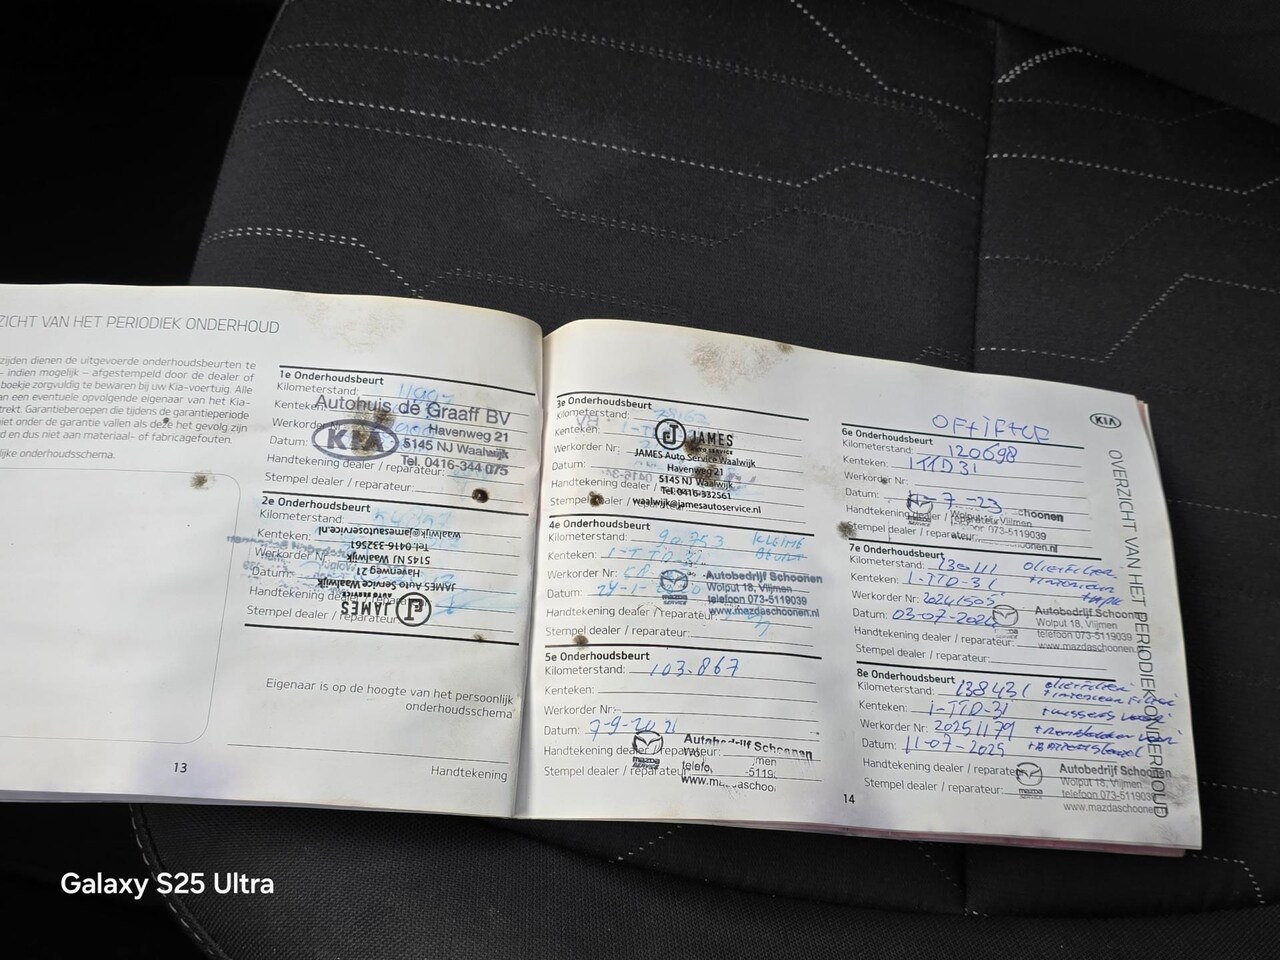 ZICHT VAN HET PERIODIEK ONDERHOUD
zijden dienen de uitgevoerde onderhoudsbeurten te
- indien mogelijk – afgestempeld door de dealer of
boekje zorgvuldig te bewaren bij uw Kia-voertuig. Alle
an een eventuele opvolgende eigenaar van het Kia-
trekt. Garantieberoepen die tijdens de garantieperiode
niet onder de garantie vallen als deze het gevolg zijn
d en dus niet aan materiaal- of fabricagefouten.
lijke onderhoudsschema.
1e Onderhoudsbeurt
Kilometerstand:
Kenteken:
Autohuis de Graaff BV
Werkorder Nr:
Havenweg 21
KIA
Datum:
5145 NJ Waalwijk
Tel. 0416-344 075
Handtekening dealer / reparateur:
Stempel dealer / reparateur:
2e Onderhoudsbeurt
Kilometerstand:
Kenteken:
Werkorder Nr:
Datum:
Handtekening dealer / reparateur:
Stempel dealer / reparateur:
JAMES
AUTO SERVICE
JAMES Auto Service Waalwijk
Havenweg 21
5145 NJ Waalwijk
Tel: 0416-332561
waalwijk@jamesautoservice.nl
Eigenaar is op de hoogte van het persoonlijk
onderhoudsschema
Handtekening
13
3e Onderhoudsbeurt
Kilometerstand:
Kenteken:
Werkorder Nr:
Datum:
Stempel dealer
JAMES
AUTO SERVICE
JAMES Auto Service Waalwijk
Havenweg 21
5145 NJ Waalwijk
Tel: 0416-332561
waalwijk@jamesautoservice.nl
4e Onderhoudsbeurt
Kilometerstand: 90.753 KLEINE
Kenteken: 1-TTD-31 BEURT
Werkorder Nr:
Datum:
Handtekening dealer / reparateur:
Stempel dealer / reparateur:
mazda
SERVICE
Autobedrijf Schoonen
Wolput 18, Vlijmen
telefoon 073-5119039
www.mazdaschoonen.nl
5e Onderhoudsbeurt
Kilometerstand: 103.867
Kenteken:
Werkorder Nr:
Datum: 7-9-2021
Handtekening dealer / reparateur:
Stempel dealer / reparateur:
mazda
SERVICE
Autobedrijf Schoonen
KIA
6e Onderhoudsbeurt
Kilometerstand: 120698
Kenteken: 1TTD31
Werkorder Nr:
Datum: 11-7-23
Handtekening dealer / reparateur:
Stempel dealer / reparateur:
Wolput 18, Vlijmen
telefoon 073-5119039
7e Onderhoudsbeurt
Kilometerstand: 130111 oliefilter
Kenteken: 1-TTD-31 + interieur
Werkorder Nr: 20241505 + APK
Datum: 03-07-2024
Handtekening dealer / reparateur:
Stempel dealer / reparateur:
Autobedrijf Schoonen
Wolput 18, Vlijmen
telefoon 073-5119039
www.mazdaschoonen.nl
8e Onderhoudsbeurt
Kilometerstand: 138431 oliefilter
Kenteken: 1-TTD-31
Werkorder Nr: 20251179
Datum: 11-07-2025
Handtekening dealer / reparateur:
Stempel dealer / reparateur:
mazda
SERVICE
Autobedrijf Schoonen
Wolput 18, Vlijmen
telefoon 073-5119039
www.mazdaschoonen
14
OVERZICHT VAN HET PERIODIEK ONDERHOUD
Galaxy S25 Ultra